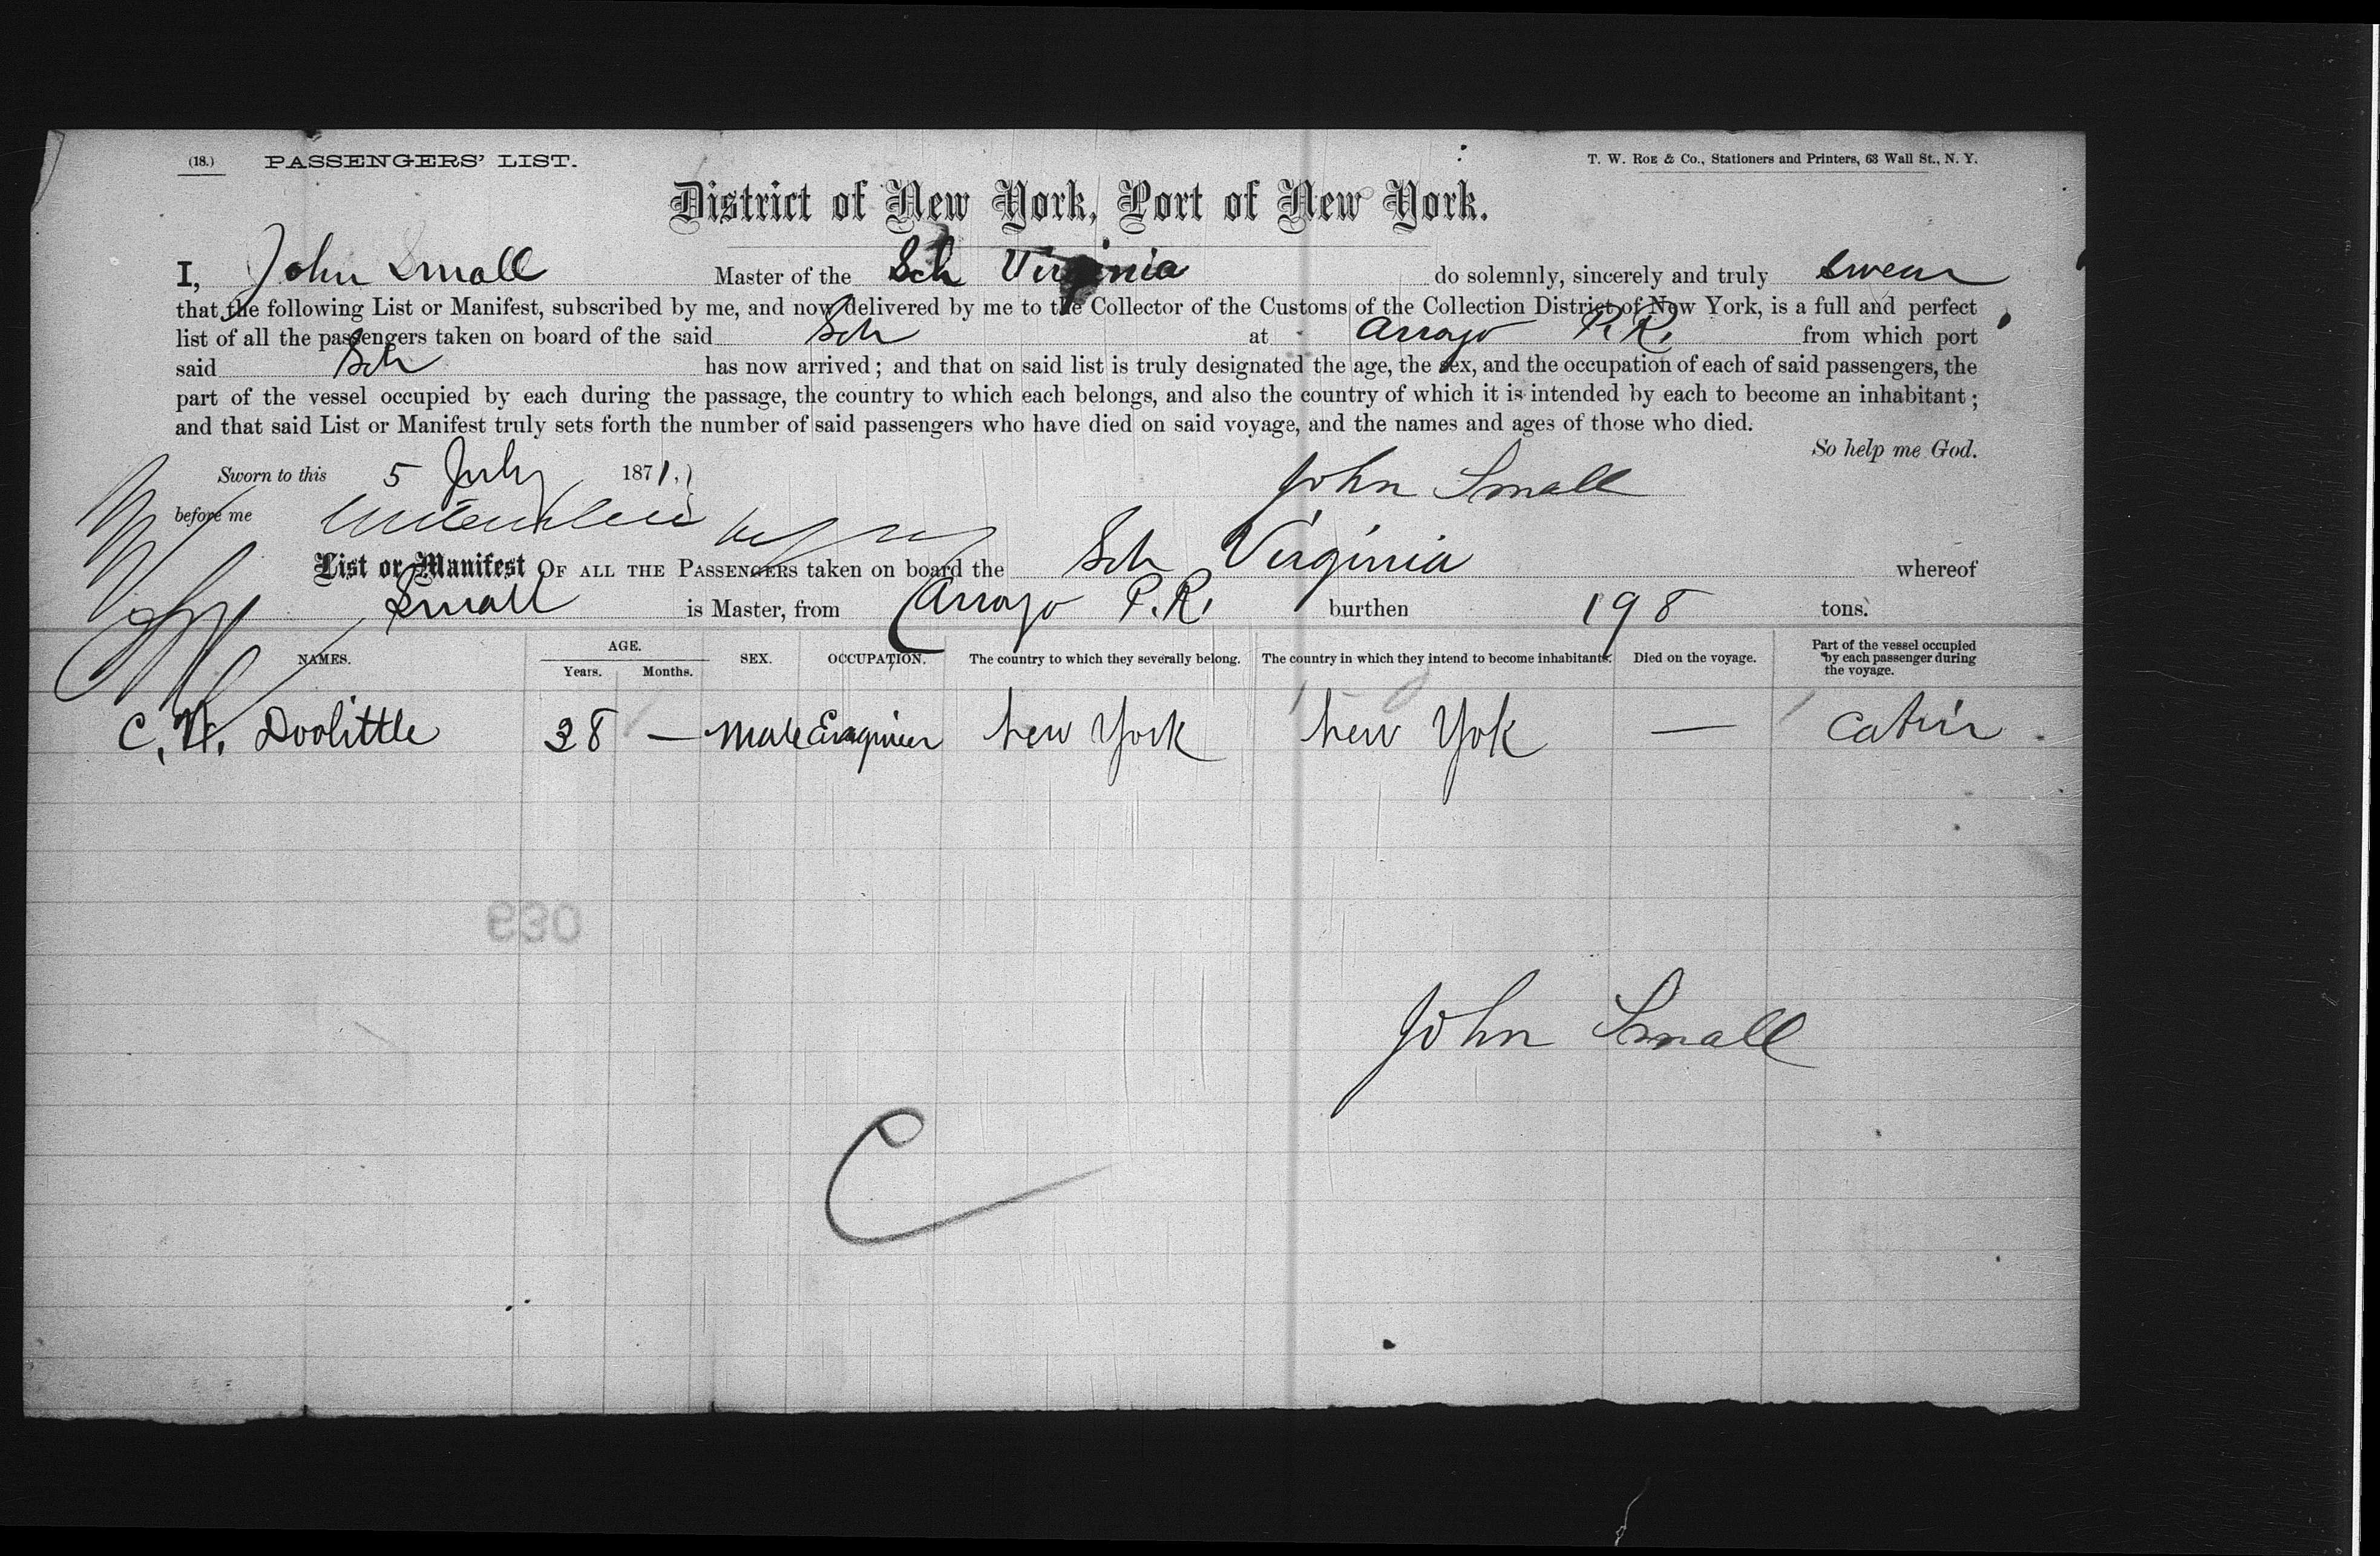 (18.) PASSENGERS' LIST. T. W. ROE & Co., Stationers and Printers, 63 Wall St., N. Y.
District of New York, Port of New York.
I, John Small Master of the Sch Virginia do solemnly, sincerely and truly swear
that the following List or Manifest, subscribed by me, and now delivered by me to the Collector of the Customs of the Collection District of New York, is a full and perfect
list of all the passengers taken on board of the said Sch at Arroyo P.R. from which port
said Sch has now arrived; and that on said list is truly designated the age, the sex, and the occupation of each of said passengers, the
part of the vessel occupied by each during the passage, the country to which each belongs, and also the country of which it is intended by each to become an inhabitant;
and that said List or Manifest truly sets forth the number of said passengers who have died on said voyage, and the names and ages of those who died.
So help me God.
Sworn to this 5 July 1871. John Small
before me
List or Manifest OF ALL THE PASSENGERS taken on board the Sch Virginia whereof
Small is Master, from Arroyo P.R. burthen 198 tons.
NAMES. AGE. Years. Months. SEX. OCCUPATION. The country to which they severally belong. The country in which they intend to become inhabitants. Died on the voyage. Part of the vessel occupied by each passenger during the voyage.
C. W. Doolittle 38 — Male Enginier New York New Yok — Cabin
030
John Small
C